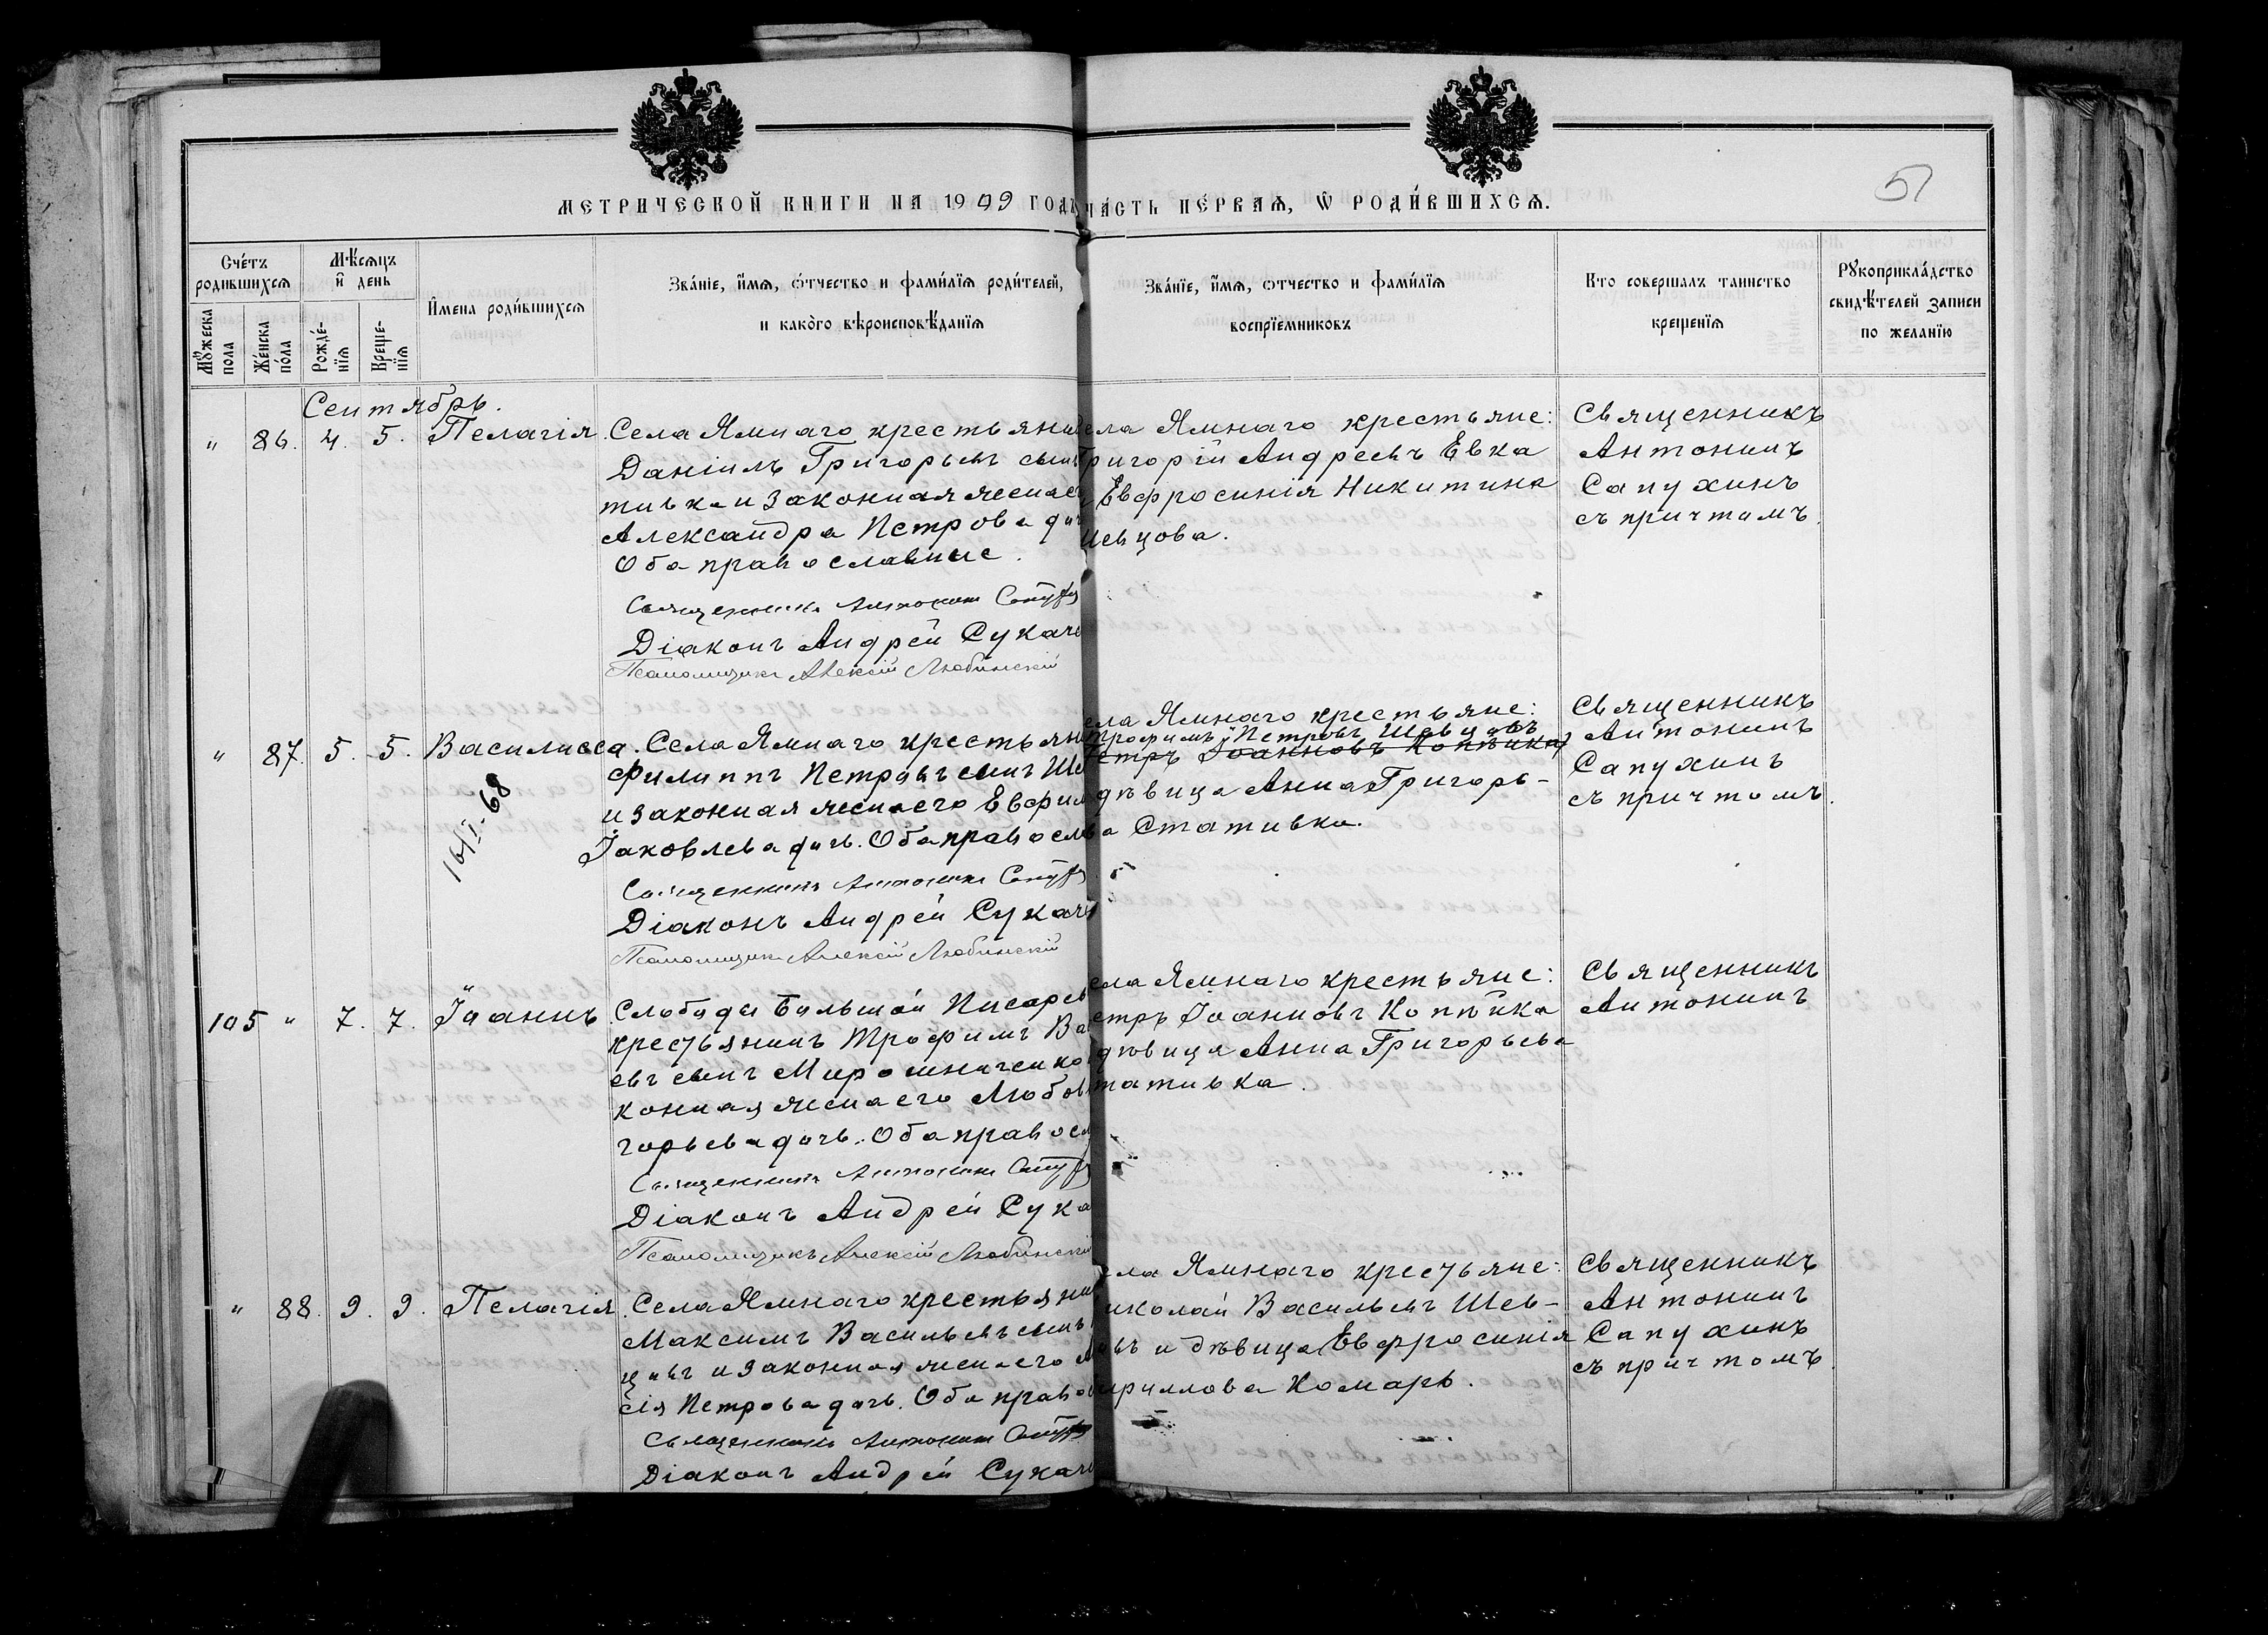 МЕТРИЧЕСКОЙ КНИГИ НА 1909 ГОДЪ
ЧА́СТЬ ПЕ́РВАѦ, Ѡ҆ РОДИ́ВШИХСѦ.
51
Сче́тъ родившихсѧ
Мѣ́сѧцъ и҆ день
И҆мена роди́вшихсѧ
Зва́нїе, и҆́мѧ, ѻ҆́тчество и фами́лїѧ роди́телей,
и како́го вѣроисповѣ́данїѧ
Зва́нїе, и҆́мѧ, ѻ҆тчество и фами́лїѧ
воспрїемниковъ
Кто совершалъ таинство
крещенїѧ
Рꙋкоприкла́дство
свидѣ́телей записи
по желанїю
Мꙋ́жеска пола
Же́нска по́ла
Рожде́-нїѧ
Креще-нїѧ
Сентябрь.
" 86. 4. 5. Пелагія.
Села Ямнаго крестьяни
Даніилъ Григорьевъ сынъ
тивка и законная жена ег
Александра Петрова доч
Оба православные.
Священникъ Антонинъ Сапух
Діаконъ Андрей Сукаче
Псаломщикъ Алексій Любинскій
ела Ямнаго крестьяне:
Григорій Андреевъ Евка
Евфросинія Никитина
Шевцова.
Священникъ
Антонинъ
Сапухинъ
съ причтомъ.
" 87. 5. 5. Василисса.
16/I-68
Села Ямнаго крестьян
Филиппъ Петровъ сынъ Ше
и законная жена его Евфим
Іаковлева дочь. Оба правосл
Священникъ Антонинъ Сапух
Діаконъ Андрей Сукаче
Псаломщикъ Алексій Любинскій
ела Ямнаго крестьяне:
Трофимъ Петровъ Шевцовъ
етръ Іоанновъ Коптика
дѣвица Анна Григорь-
ва Стативка.
Священникъ
Антонинъ
Сапухинъ
съ причтомъ.
105 " 7. 7. Іоаннъ.
Слободы Большой Писарев
крестьянинъ Трофимъ Ва
евъ сынъ Мирошниченко
конная жена его Любов
горьева дочь. Оба правосл
Священникъ Антонинъ Сапух
Діаконъ Андрей Сука
Псаломщикъ Алексій Любинскій
ела Ямнаго крестьяне:
етръ Іоанновъ Коптика
дѣвица Анна Григорьева
тативка.
Священникъ
Антонинъ
" 88. 9. 9. Пелагія.
Села Ямнаго крестьянин
Максимъ Васильевъ сынъ
цовъ и законная жена его
сія Петрова дочь. Оба право
Священникъ Антонинъ Сапух
Діаконъ Андрей Сукаче
ела Ямнаго крестьяне:
иколай Васильевъ Шев-
овъ и дѣвица Евфросинія
ириллова Комарь.
Священникъ
Антонинъ
Сапухинъ
съ причтомъ.